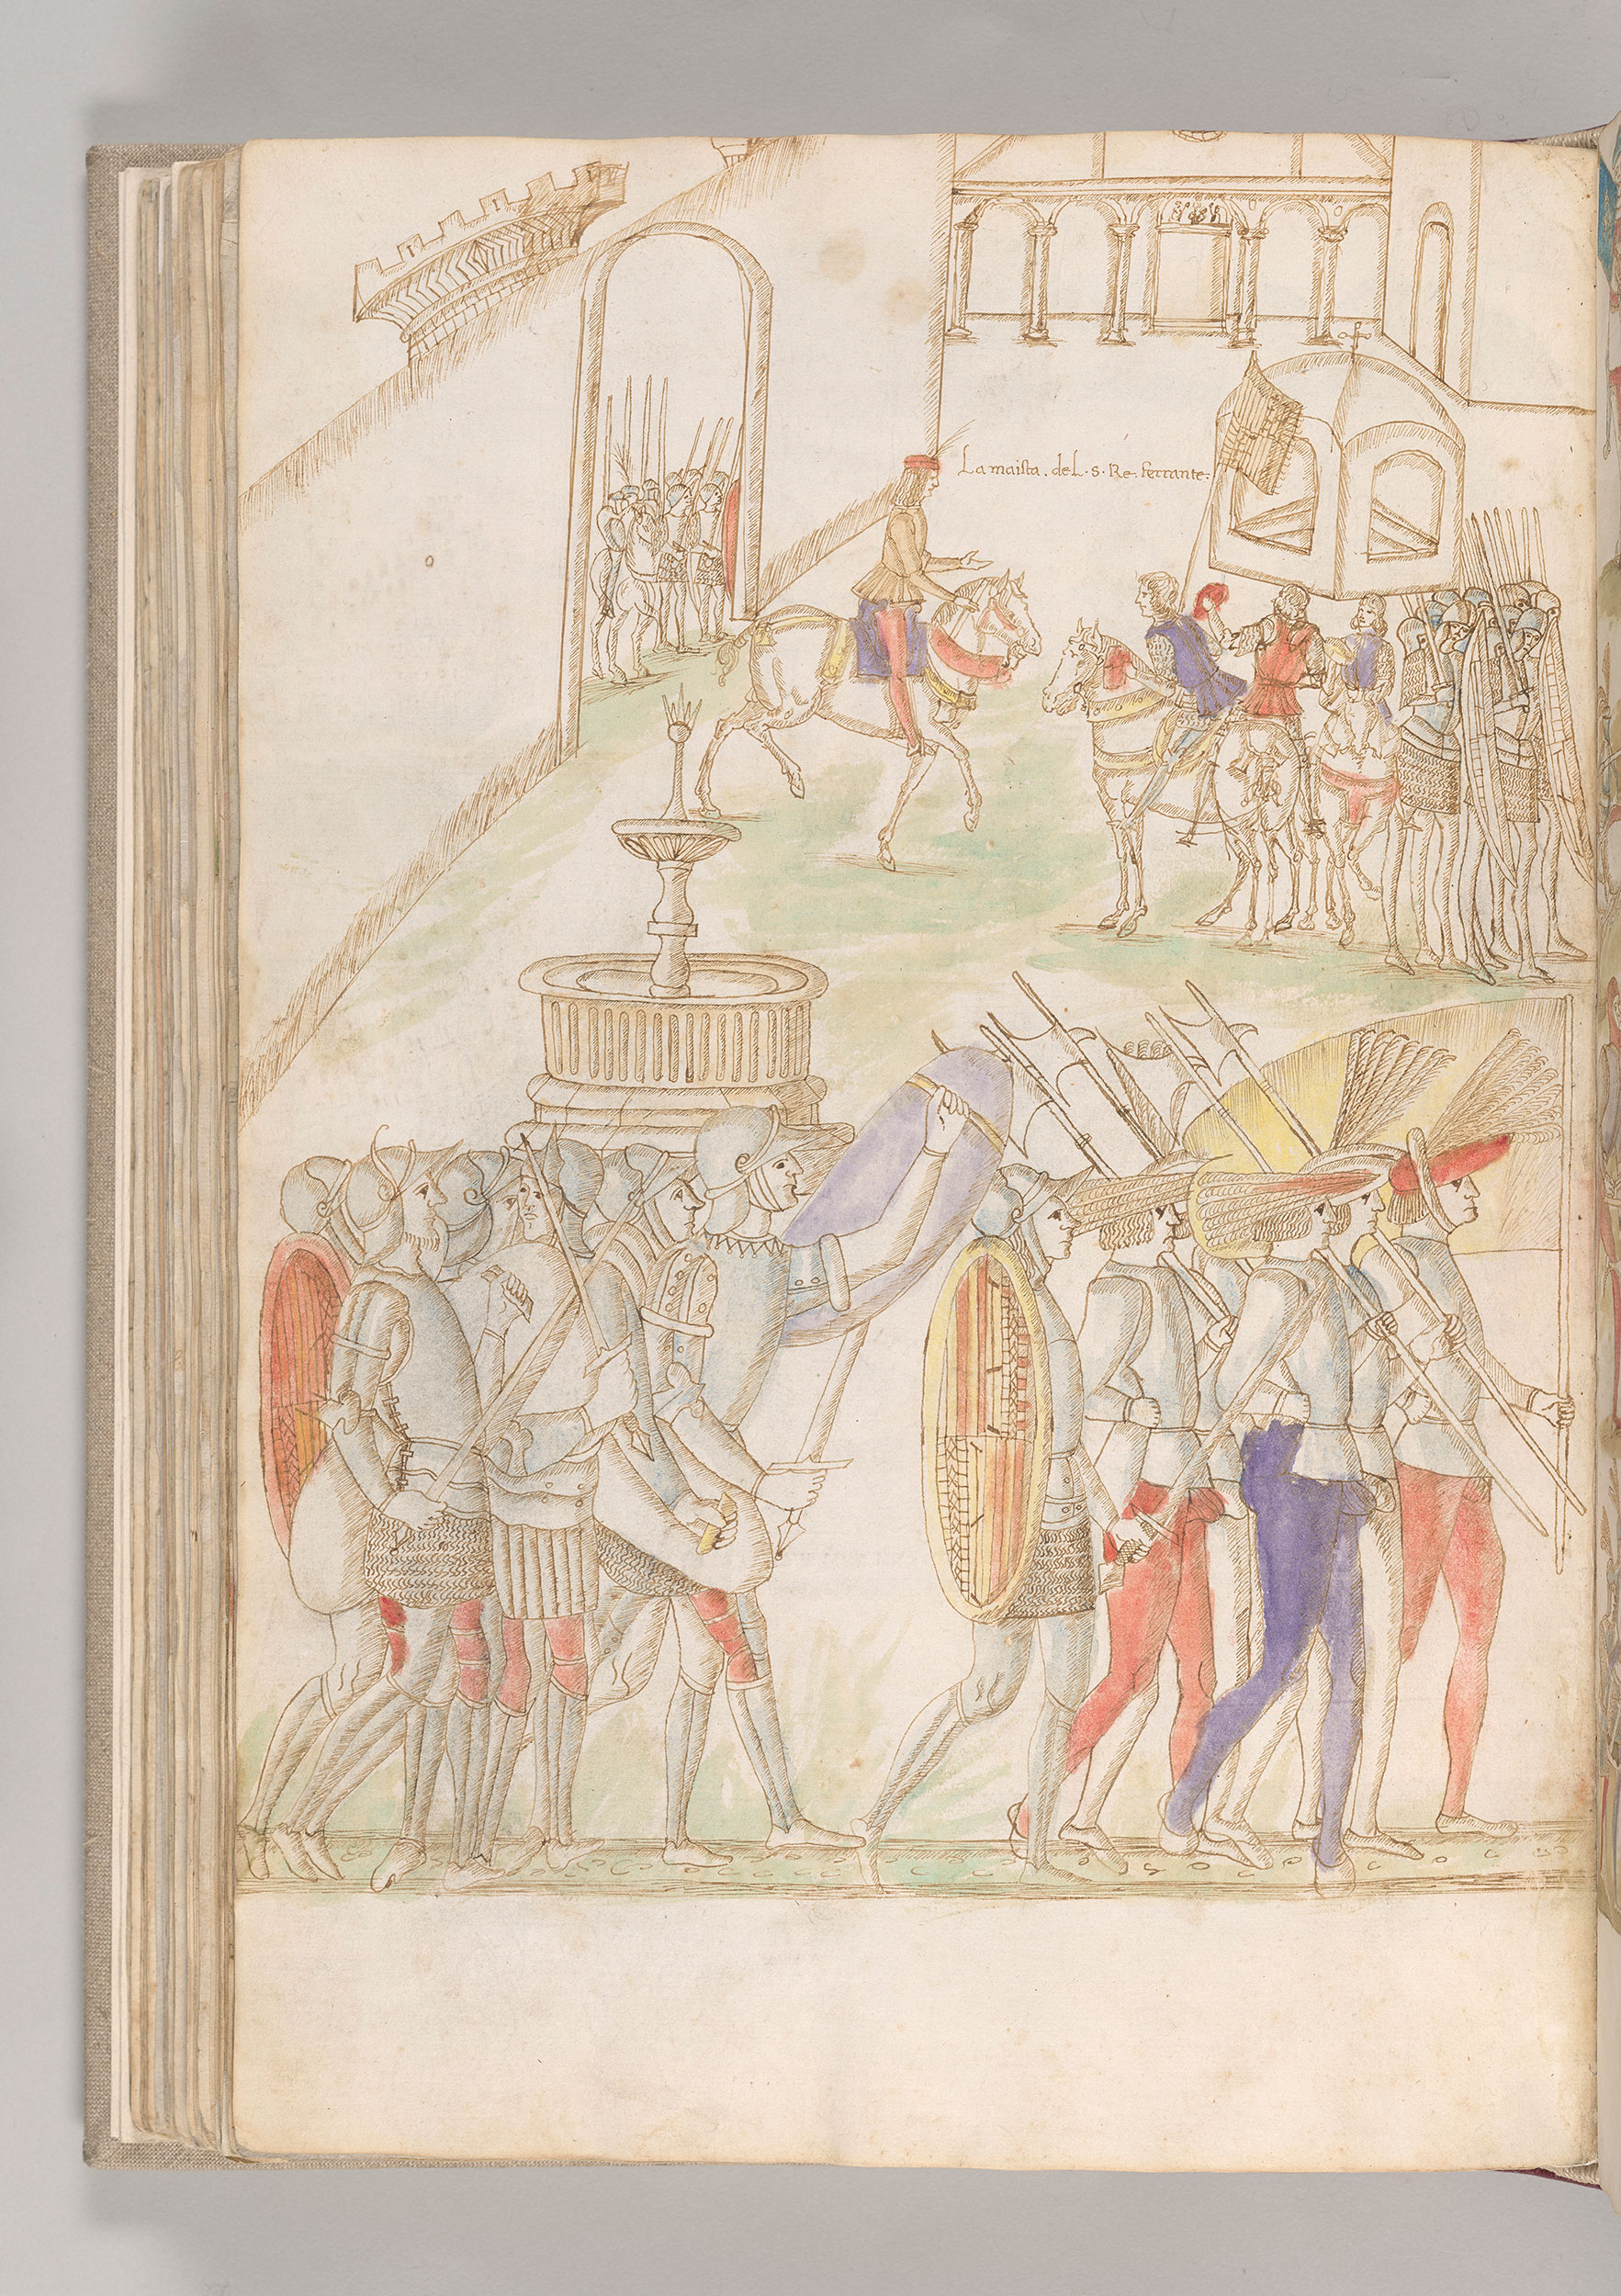 La maista. del. s. Re. ferrante: